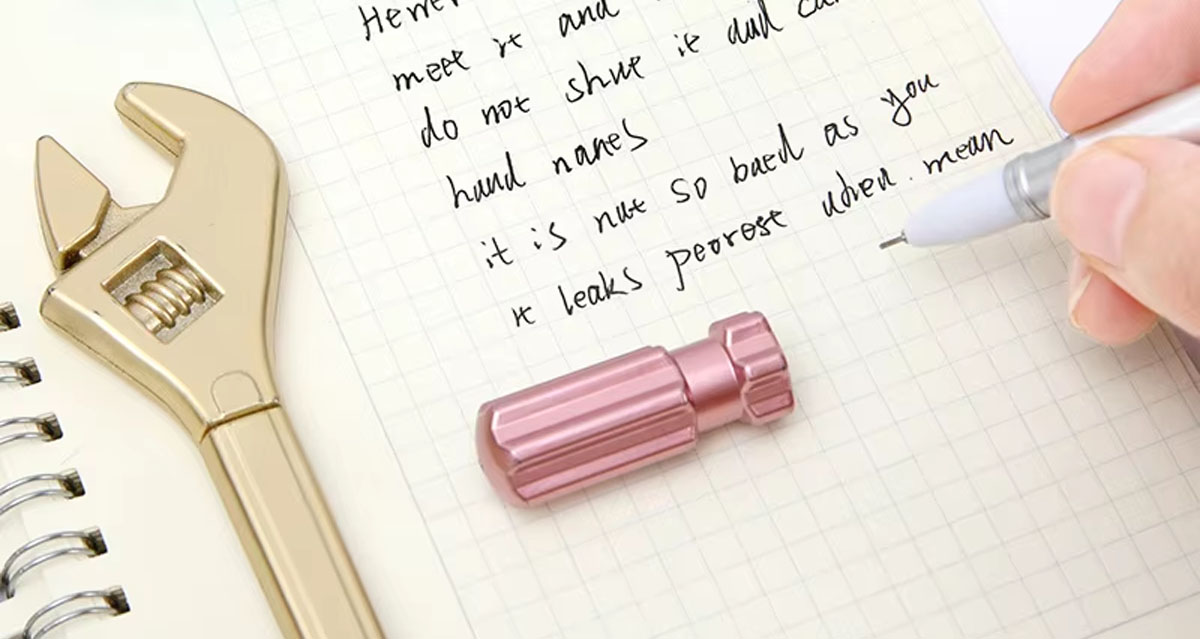 meet it and
do not shut it and
hand nanes
it is nut so baed as you
it leaks peorest when mean